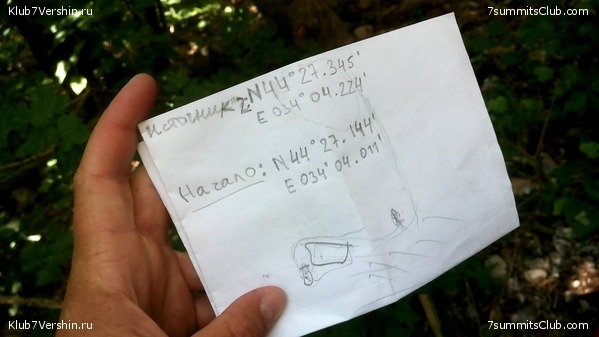 Klub7Vershin.ru
7summitsClub.com
источник 2 N44° 27.345'
E 034° 04.224'
Начало: N 44° 27.144'
E 034° 04.011'
Klub7Vershin.ru
7summitsClub.com